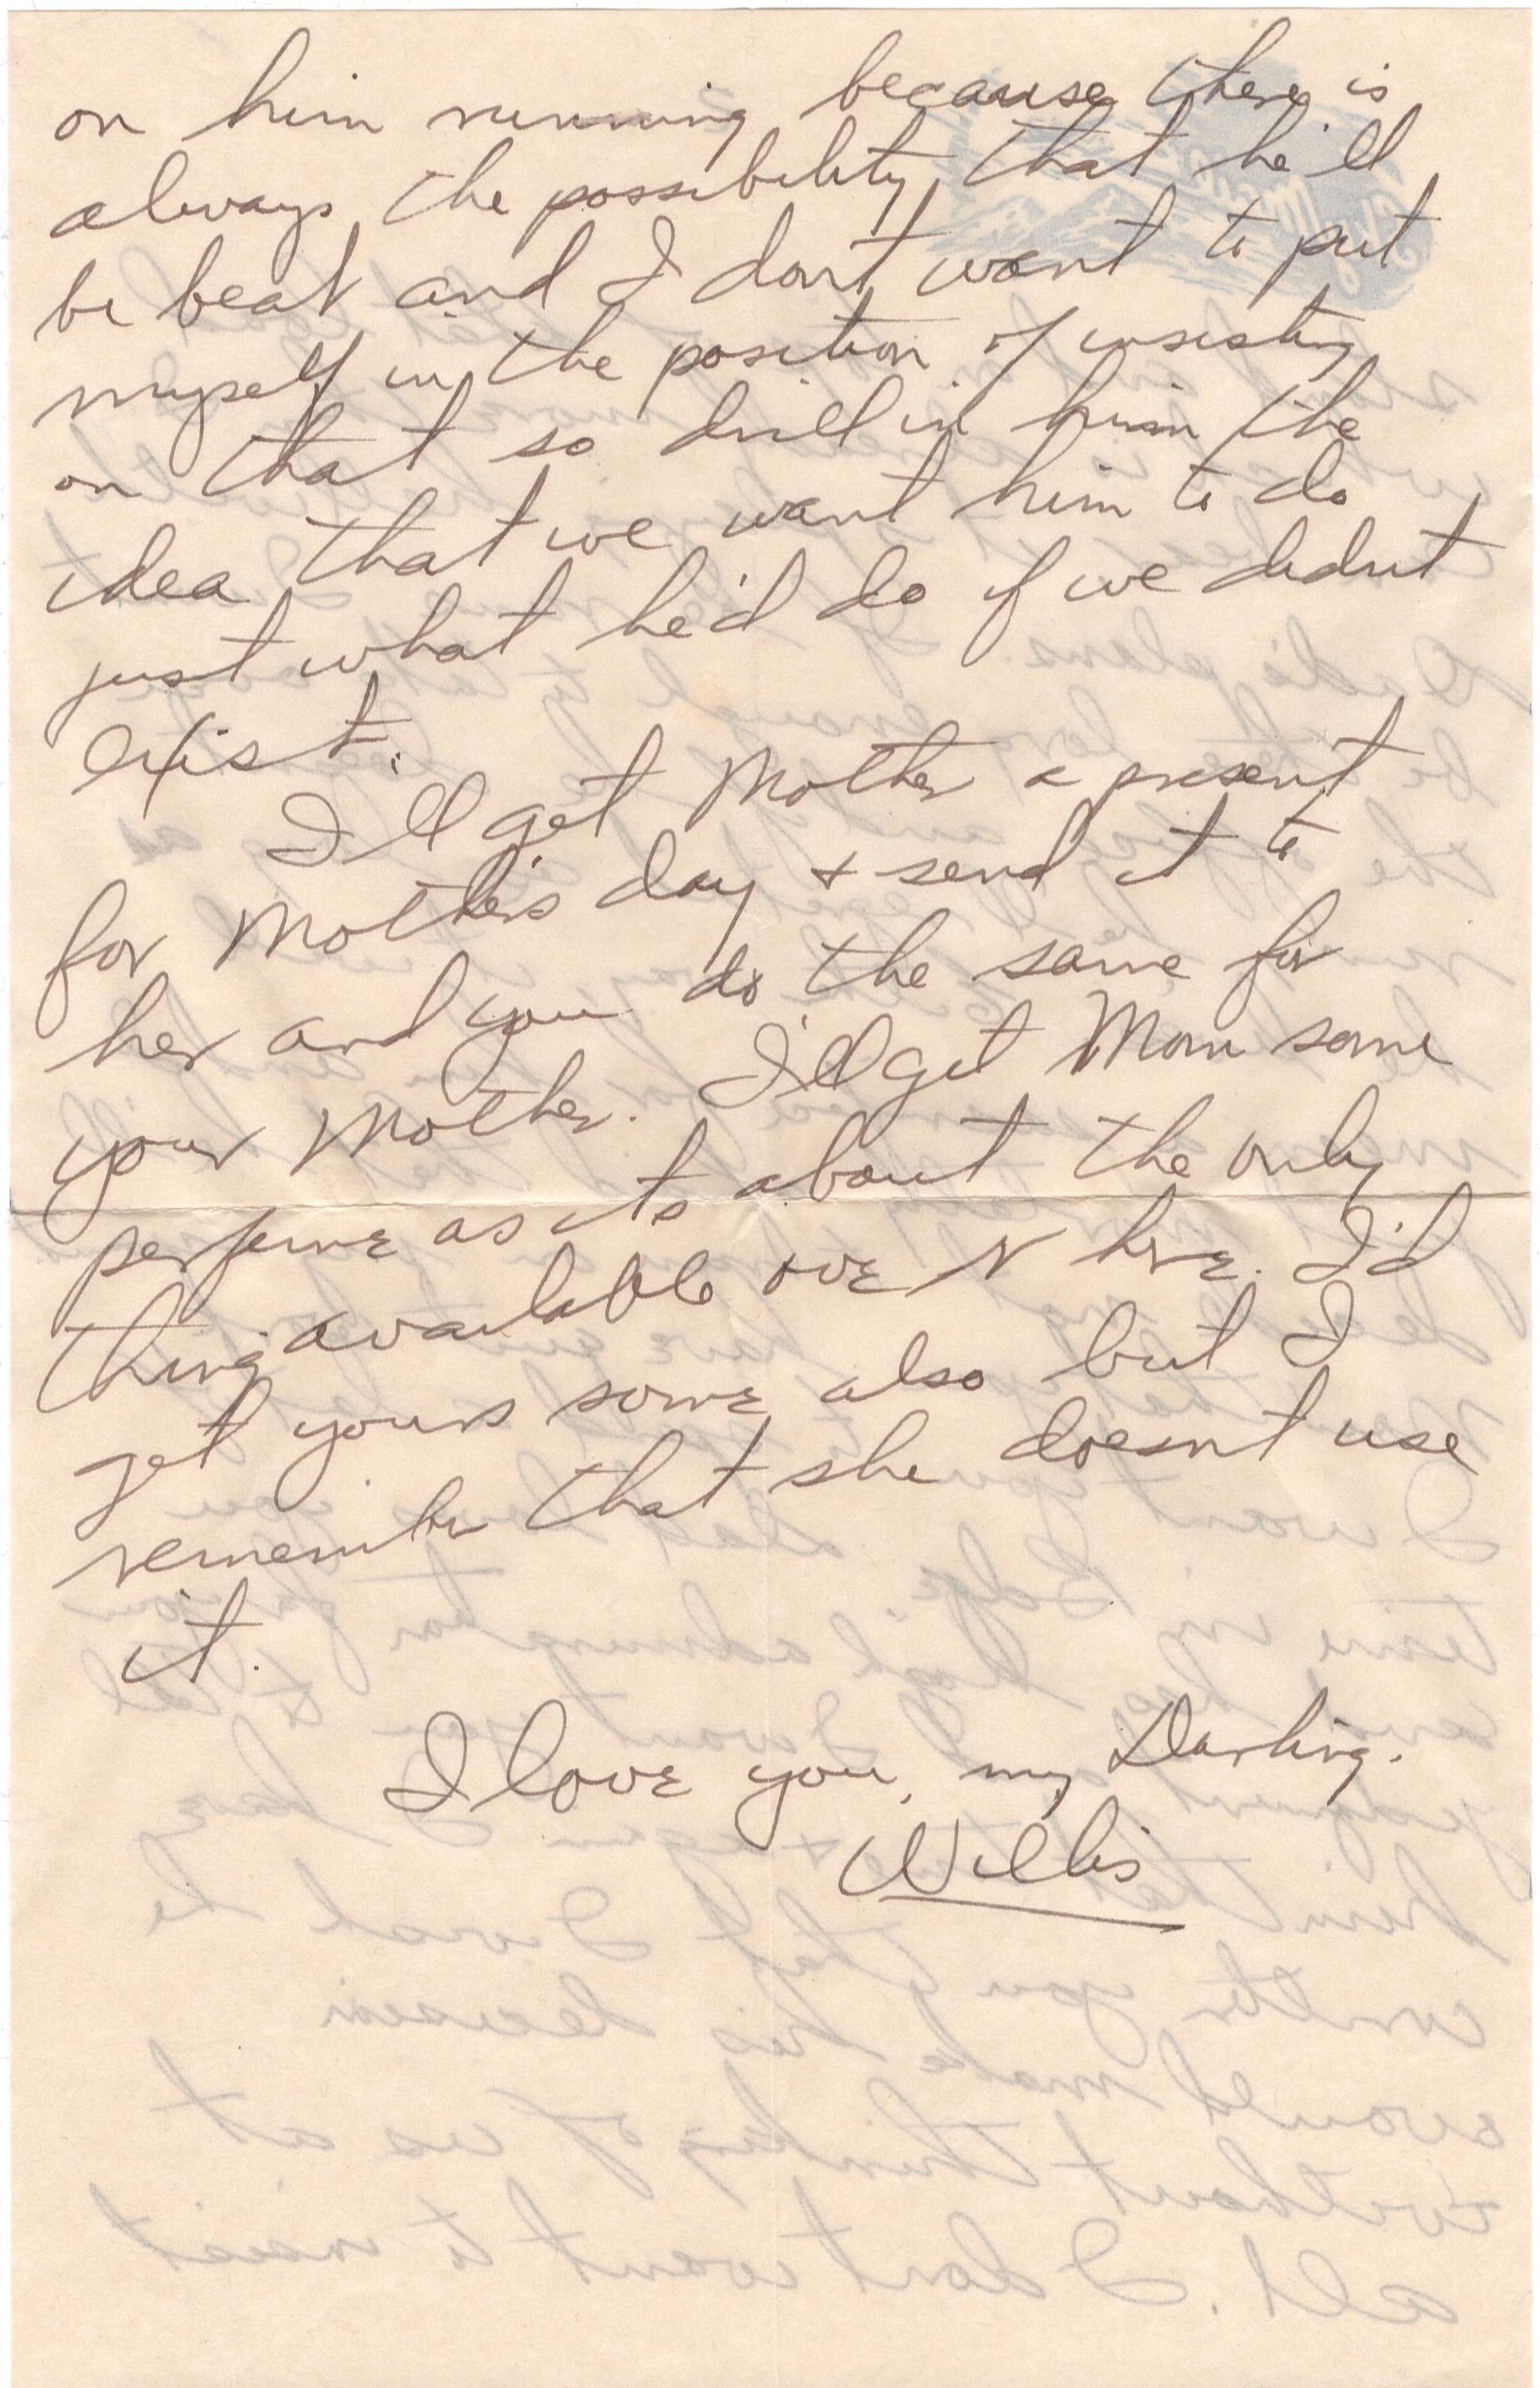 on him running because there is
always the possibility that he'll
be beat and I dont want to put
myself in the position of insisting
on that so drill in him the
idea that we want him to do
just what he'd do if we didnt
exist.
I'll get Mother a present
for Mother's day + send it to
her and you do the same for
your Mother. I'll get Mom some
perfume as its about the only
thing available over here. I'd
get yours some also but I
remember that she doesnt use
it.
I love you, my Darling.
Willis